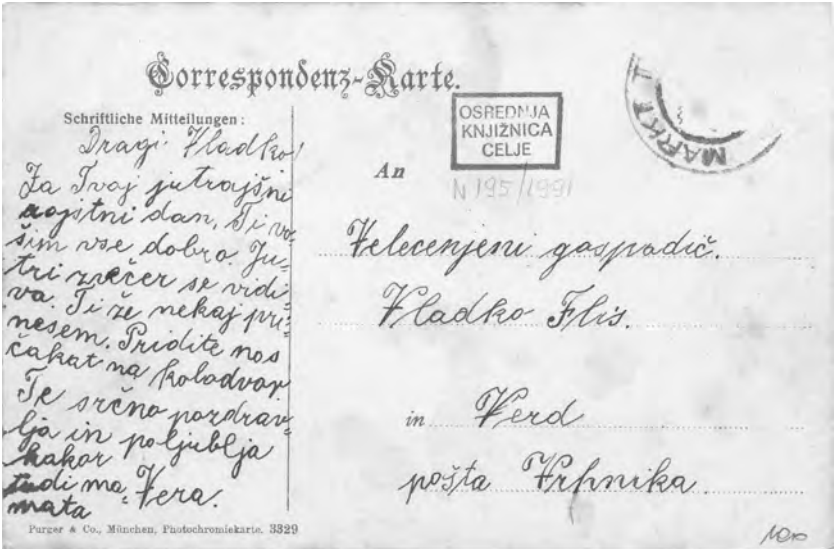 Correspondenz-Karte.
Schriftliche Mitteilungen:
Dragi Vladko!
Za Tvoj jutrajšni
rojstni dan, Ti vo-
šim vse dobro. Ju-
tri zvečer se vidi-
va. Ti že nekaj pri-
nesem. Pridite nas
čakat na kolodvor.
Te srčno pozdrav-
lja in poljublja
kakor
tudi ma- Vera.
mata
Purger & Co., München, Photochromiekarte. 3329
OSREDNJA
KNJIŽNICA
CELJE
N 195/1991
MARKT T
An
Velecenjeni gospodič.
Vladko Flis.
in Verd
pošta Vrhnika.